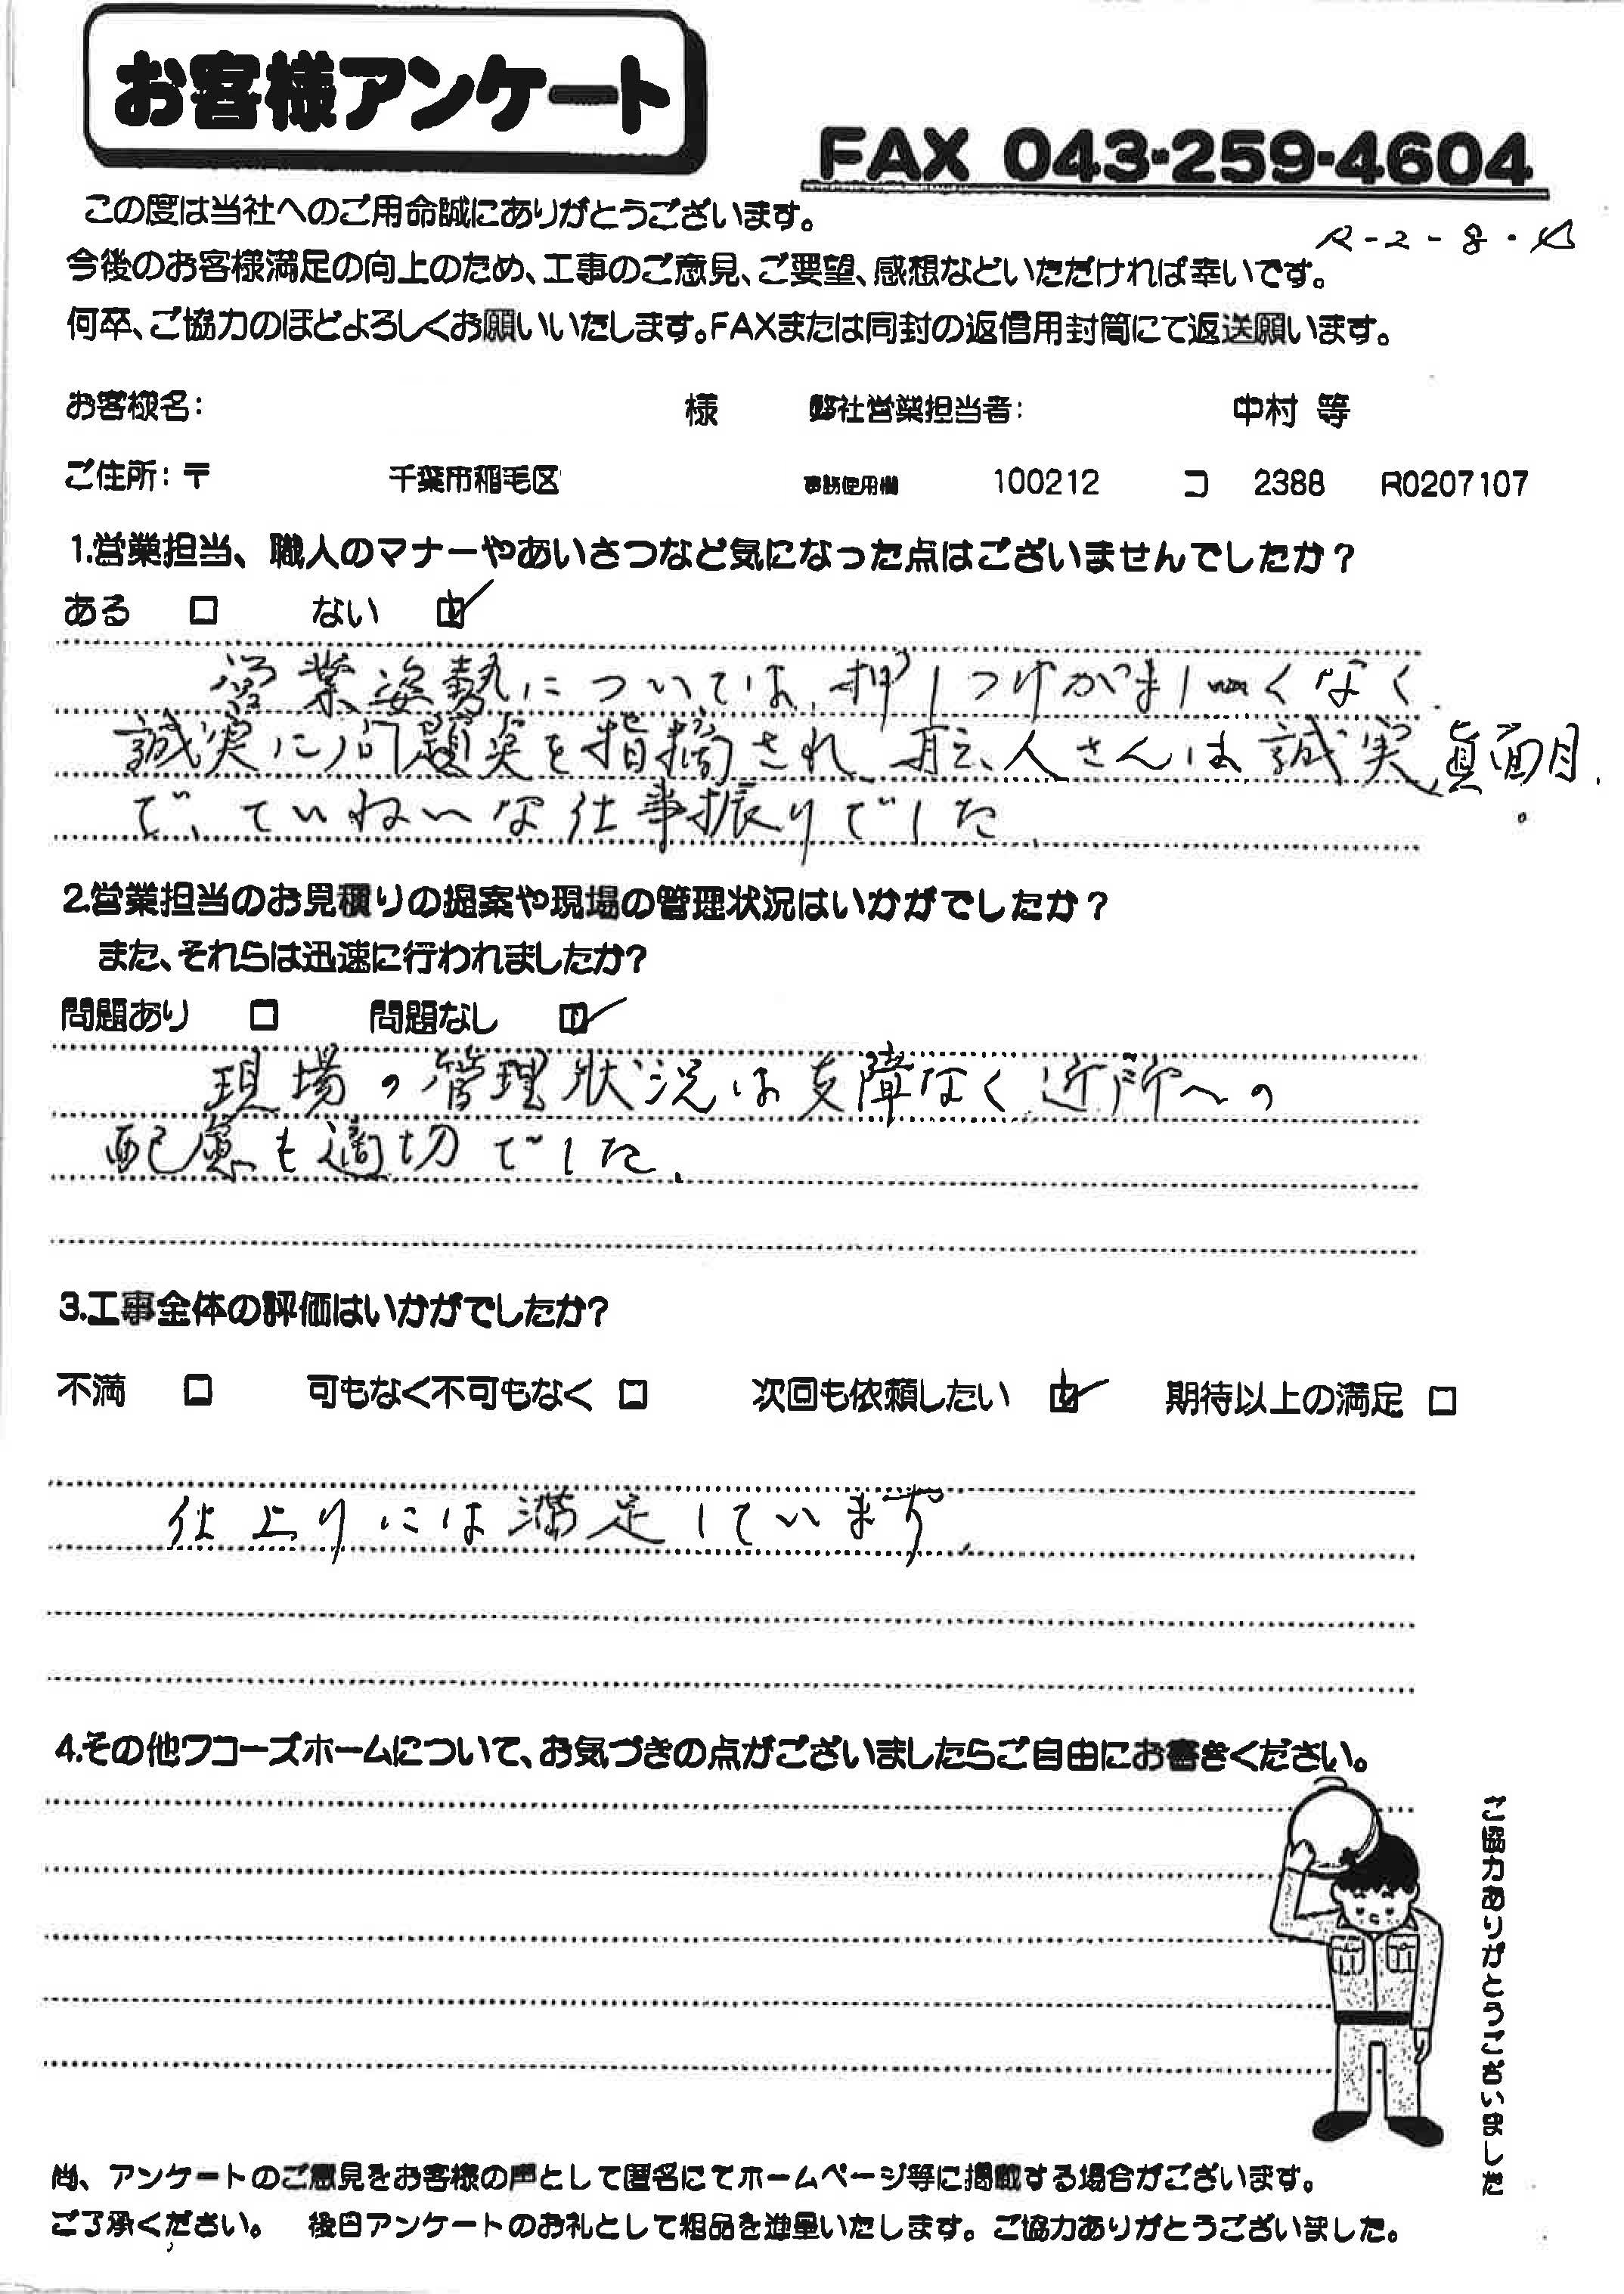 お客様アンケート
FAX 043-259-4604
この度は当社へのご用命誠にありがとうございます。
R-2-8-
今後のお客様満足の向上のため、工事のご意見、ご要望、感想などいただければ幸いです。
何卒、ご協力のほどよろしくお願いいたします。FAXまたは同封の返信用封筒にて返送願います。
お客様名: 様 弊社営業担当者: 中村 等
ご住所:〒 千葉市稲毛区 事務使用欄 100212 コ 2388 R0207107
1.営業担当、職人のマナーやあいさつなど気になった点はございませんでしたか?
ある □ ない ☑
営業姿勢については、押しつけがましくなく
誠実に問題点を指摘され、職人さんは誠実、真面目
で、ていねいな仕事振りでした。
2.営業担当のお見積りの提案や現場の管理状況はいかがでしたか?
また、それらは迅速に行われましたか?
問題あり □ 問題なし ☑
現場の管理状況は支障なく近所への
配慮も適切でした。
3.工事全体の評価はいかがでしたか?
不満 □ 可もなく不可もなく □ 次回も依頼したい ☑ 期待以上の満足 □
仕上りには満足しています。
4.その他ワコーズホームについて、お気づきの点がございましたらご自由にお書きください。
ご協力ありがとうございました
尚、アンケートのご意見をお客様の声として匿名にてホームページ等に掲載する場合がございます。
ご了承ください。 後日アンケートのお礼として粗品を進呈いたします。ご協力ありがとうございました。